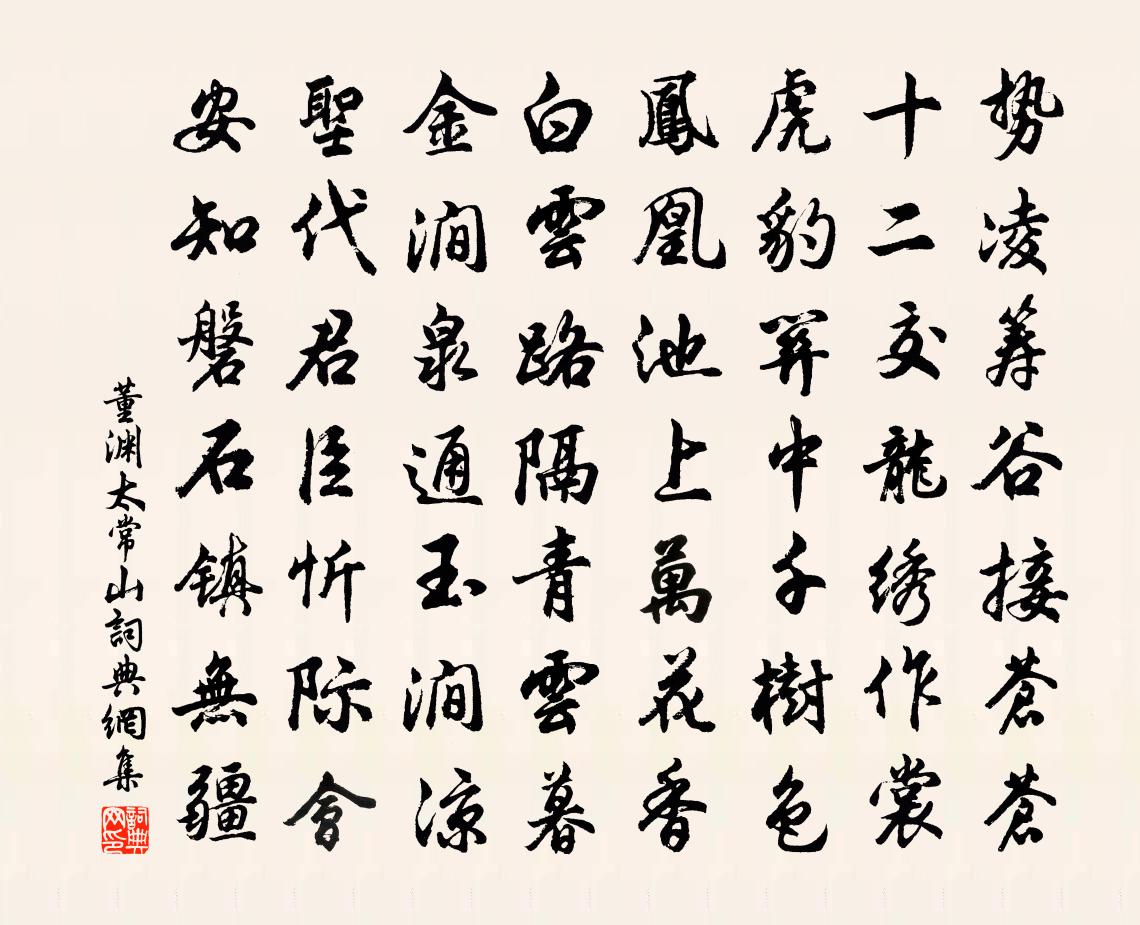 勢凌筹谷接蒼蒼
十二交龍绣作裳
虎豹關中千樹色
鳳凰池上萬花香
白雲路隔青雲暮
金澗泉通玉澗涼
聖代君臣忻际會
安知磐石鎮無疆
董渊太常山詞典網集
詞典网印